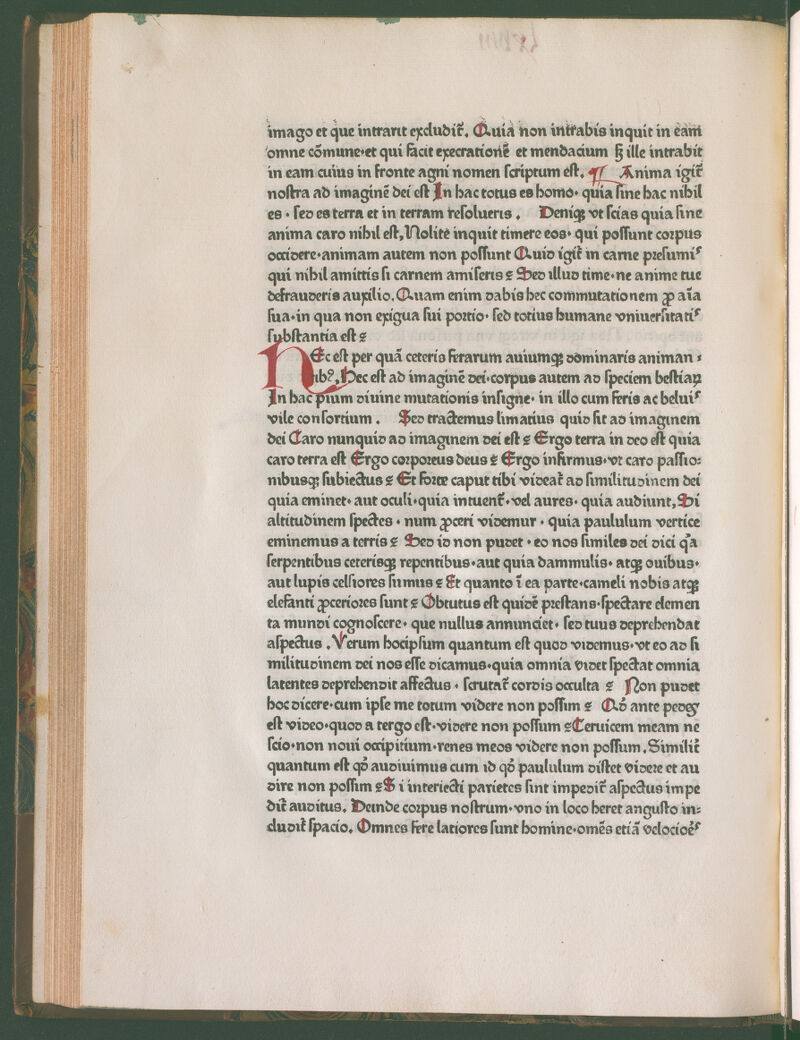 imago et que intrant excludit᷑. Quia non intrabis inquit in eam
omne cōmune·et qui facit execrationē et mendacium ſꝫ ille intrabit
in eam cuius in fronte agni nomen ſcriptum eſt. ¶ Anima igit᷑
noſtra ad imaginē dei eſt In hac totus es homo· quia ſine hac nihil
es · ſed es terra et in terram reſolueris . Deniqꝫ vt ſcias quia ſine
anima caro nihil eſt, Nolite inquit timere eos· qui poſſunt corpus
occidere·animam autem non poſſunt Quid igit᷑ in carne preſumis
qui nihil amittis ſi carnem amiſeris ? Sed illud time·ne anime tue
defrauderis auxilio. Quam enim dabis hec commutationem ꝓ aīa
ſua·in qua non exigua ſui portio· ſed totius humane vniuerſitatis
ſubſtantia eſt ?
NEc eſt per quā ceteris ferarum auiumqꝫ dominaris animan⸗
tibꝰ. Hec eſt ad imaginē dei·corpus autem ad ſpeciem beſtiaꝝ
In hac pium diuine mutationis inſigne· in illo cum feris ac beluis
vile conſortium . Sed tractemus limatius quid ſit ad imaginem
dei Caro nunquid ad imaginem dei eſt ? Ergo terra in deo eſt quia
caro terra eſt Ergo corporeus deus ? Ergo infirmus·vt caro paſſio⸗
nibusqꝫ ſubiectus ? Et forte caput tibi videat᷑ ad ſimilitudinem dei
quia eminet· aut oculi·quia intuent᷑·vel aures· quia audiunt, Si
altitudinem ſpectes · num ꝓceri videmur · quia paululum vertice
eminemus a terris ? Sed id non pudet · eo nos ſimiles dei dici qͣ
ſerpentibus ceterisqꝫ repentibus·aut quia dammulis· atqꝫ ouibus·
aut lupis celſiores ſumus ? Et quanto ī ea parte·cameli nobis atqꝫ
elefanti ꝓceriores ſunt ? Obtutus eſt quidē preſtans·ſpectare elemen
ta mundi cognoſcere· que nullus annunciet· ſed tuus deprehendat
aſpectus . Verum hocipſum quantum eſt quod videmus·vt eo ad ſi
militudinem dei nos eſſe dicamus·quia omnia videt ſpectat omnia
latentes deprehendit affectus · ſcrutat᷑ cordis occulta ? Non pudet
hoc dicere·cum ipſe me totum videre non poſſim ? Qd̄ ante pedes
eſt video·quod a tergo eſt·videre non poſſum ? Ceruicem meam ne
ſcio·non noui occipitium·renes meos videre non poſſum. Similit᷑
quantum eſt qd̄ audiuimus cum id qd̄ paululum diſtet videre et au
dire non poſſim ? Si interiecti parietes ſint impedit᷑ aſpectus impe
dit᷑ auditus. Deinde corpus noſtrum·vno in loco heret anguſto in⸗
cludit᷑ ſpacio. Omnes fere latiores ſunt homine·omēs etiā velociores